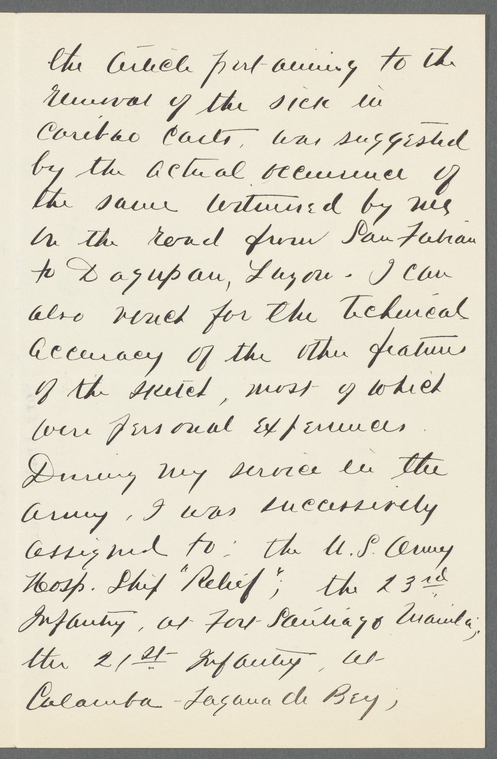 the article pertaining to the
removal of the sick in
Caribao Carts, was suggested
by the actual occurrence of
the same witnessed by me
on the road from San Fabian
to Dagupan, Luzon. I can
also vouch for the technical
accuracy of the other features
of the sketch, most of which
were personal experiences.
During my service in the
army, I was successively
assigned to: the U.S. Army
Hosp. Ship "Relief"; the 23rd
Infantry, at Fort Santiago Manila;
the 21st Infantry, at
Calamba - Laguna de Bey;